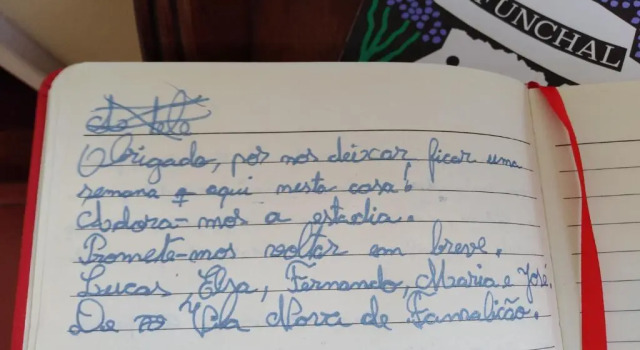 FUNCHAL
Obrigado, por nos deixar ficar uma
semana aqui nesta casa!
Adora-mos a estadia.
Promete-mos voltar em breve.
Lucas Elsa, Fernando, Maria e José.
De Vila Nova de Famalicão.